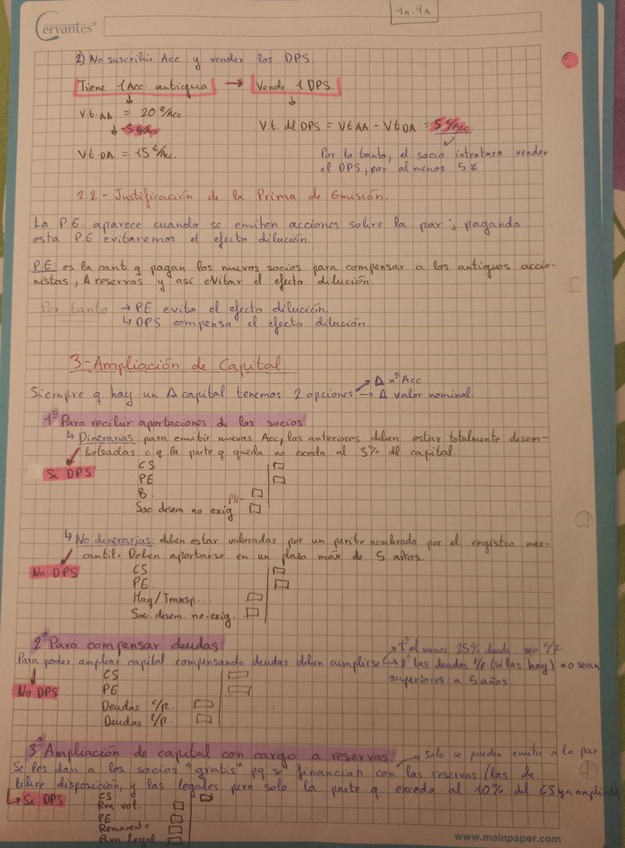 Cervantes®
2) No suscribir Acc y vender los DPS
Tiene 1 Acc. antigua → Vende 1 DPS.
V.t. AA = 20 €/Acc
5 €/Acc
V.t. del DPS = VtAA - VtDA = 5 €/Acc
Vt DA = 15 €/Acc.
Por lo tanto, el socio intentara vender
el DPS, por al menos 5 €
2.2.- Justificación de la Prima de Emisión.
La P.E. aparece cuando se emiten acciones sobre la par; pagando
esta PE evitaremos el efecto dilución.
P.E: es la cant q pagan los nuevos socios para compensar a los antiguos accio-
nistas, Δ reservas y así evitar el efecto dilución.
Por tanto → PE evita el efecto dilución.
↳ DPS compensa el efecto dilución
3-Ampliación de Capital
Siempre q hay un Δ capital tenemos 2 opciones → Δ nº Acc
→ Δ valor nominal.
1º Para recibir aportaciones de los socios
↳ Dinerarias: para emitir nuevas Acc, las anteriores deben estar totalmente desem-
bolsadas o q la parte q queda no exceda al 3% del capital.
Si DPS
CS
PE
B.
Soc desem no exig
↳ No dinerarias: deben estar valoradas por un perito nombrado por el registro mer-
cantil. Deben aportarse en un plazo máx de 5 años.
No DPS
CS
PE.
Maq/Transp...
Soc. desem. no exig.
2º Para compensar deudas
Para poder ampliar capital compensando deudas deben cumplirse → 1º al menos 25% deuda sea c/p.
↳ 2º las deudas l/p (si las hay) no sean
superiores a 5 años
No DPS
CS
PE
Deudas c/p.
Deudas l/p.
3º Ampliación de capital con cargo a reservas → Solo se pueden emitir a la par
Se les dan a los socios "gratis" pq se financian con las reservas (las de
libre disposición, y las legales pero solo la parte q exceda al 10% del CS ya ampliado
↳ Si DPS
CS
Rva vol.
PE
Remanente
Rva legal
www.mainpaper.com